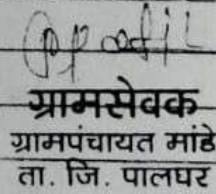 ग्रामसेवक
ग्रामपंचायत मांडे
ता. जि. पालघर